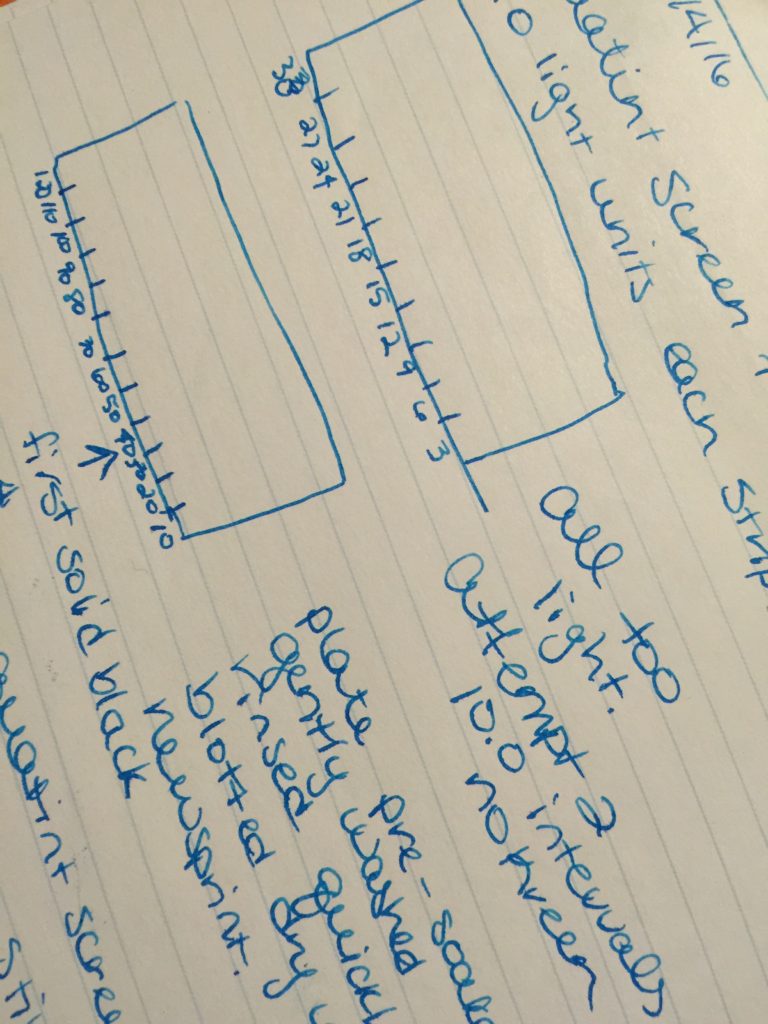 /4/16
screen
0 light units each strip
30 27 24 21 18 15 12 9 6 3
all too
light.
attempt 2
10.0 intervals
no
120 110 100 90 80 70 60 50 40 30 20 10
plate pre-soake
gently washed
rinsed quickl
blotted dry
newsprint.
first solid black
scree